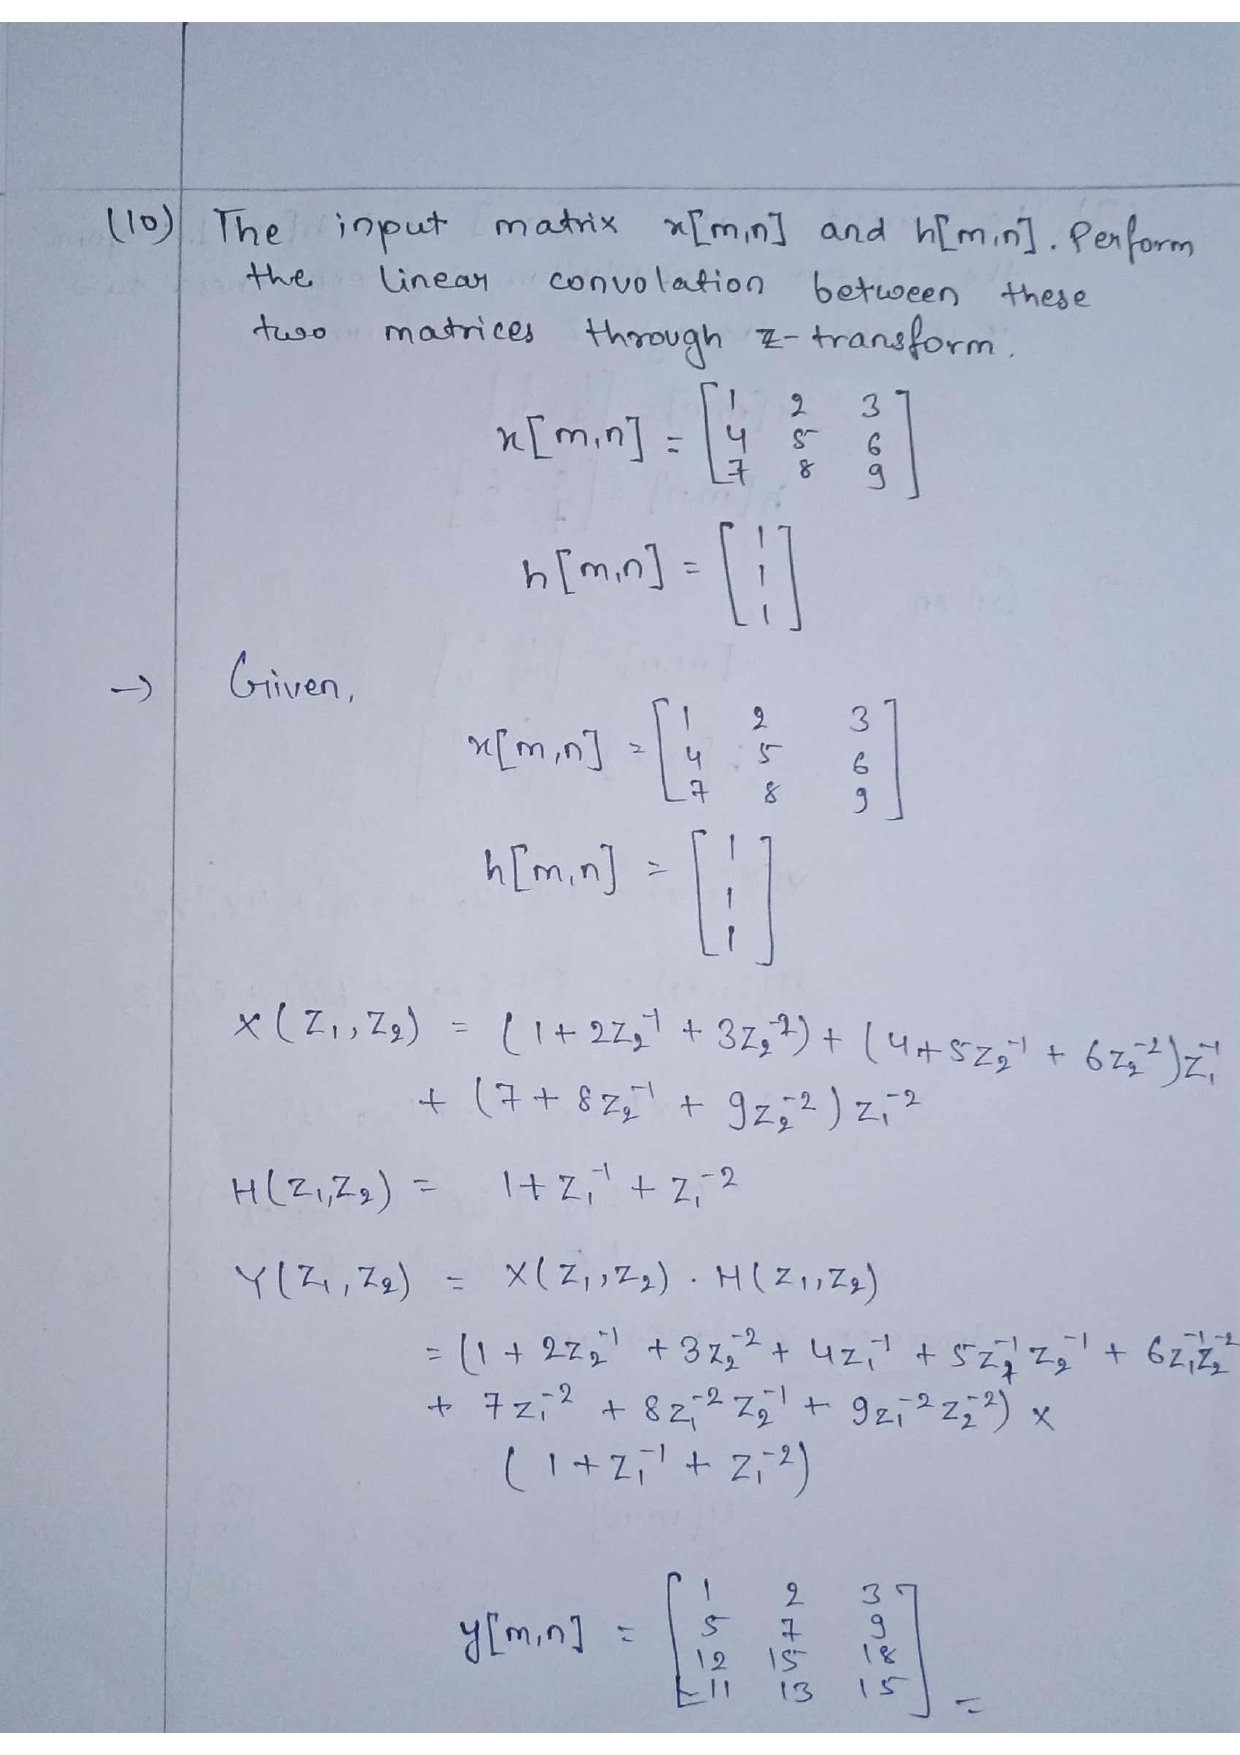 (10) The input matrix x[m,n] and h[m,n]. Perform
the linear convolation between these
two matrices through z-transform.
x[m,n] = [1 2 3
4 5 6
7 8 9]
h[m,n] = [1
1
1]
→ Given,
x[m,n] = [1 2 3
4 5 6
7 8 9]
h[m,n] = [1
1
1]
X(Z₁,Z₂) = (1+2Z₂⁻¹+3Z₂⁻²)+(4+5Z₂⁻¹+6Z₂⁻²)Z₁⁻¹
+ (7+8Z₂⁻¹+9Z₂⁻²)Z₁⁻²
H(Z₁,Z₂) = 1+Z₁⁻¹+Z₁⁻²
Y(Z₁,Z₂) = X(Z₁,Z₂).H(Z₁,Z₂)
=(1+2Z₂⁻¹+3Z₂⁻²+4Z₁⁻¹+5Z₁⁻¹Z₂⁻¹+6Z₁⁻¹Z₂⁻²
+ 7Z₁⁻²+8Z₁⁻²Z₂⁻¹+9Z₁⁻²Z₂⁻²) ×
(1+Z₁⁻¹+Z₁⁻²)
y[m,n] = [1 2 3
5 7 9
12 15 18
11 13 15] =